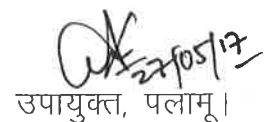 27/05/17
उपायुक्त, पलामू।